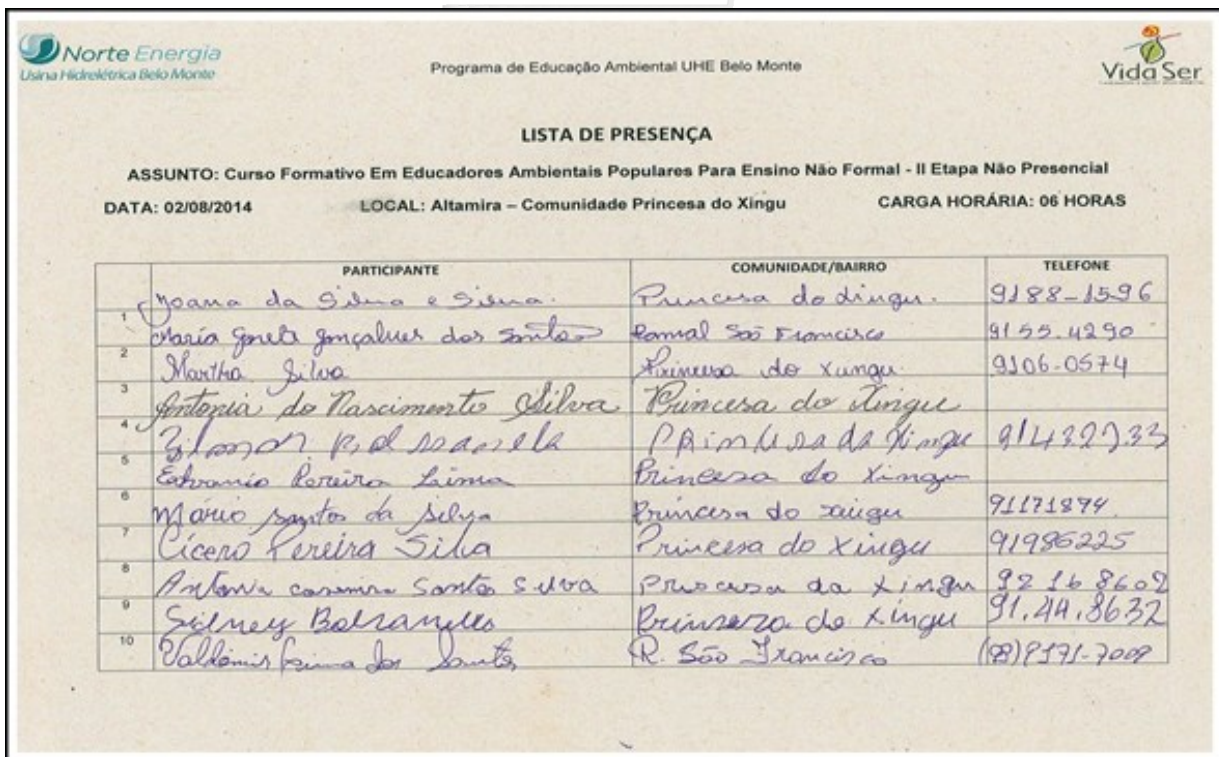 Norte Energia
Usina Hidrelétrica Belo Monte
Programa de Educação Ambiental UHE Belo Monte
Vida Ser
LISTA DE PRESENÇA
ASSUNTO: Curso Formativo Em Educadores Ambientais Populares Para Ensino Não Formal - II Etapa Não Presencial
DATA: 02/08/2014 LOCAL: Altamira – Comunidade Princesa do Xingu CARGA HORÁRIA: 06 HORAS
PARTICIPANTE COMUNIDADE/BAIRRO TELEFONE
Joana da Silva e Silva. Princesa do Xingu. 9188-1596
1 Maria gonçalves dos Santos Ramal São Francisco 9155.4290
2 Martha Silva Princesa do Xingu 9106-0574
3 Antonia do Nascimento Silva Princesa do Xingu
4 Princesa do Xingu
5 Pereira Lima Princesa do Xingu
6 Mário Santos da Silva Princesa do 91171874
7 Cícero Pereira Silva Princesa do Xingu 91986225
8 Antonia Santos Silva da Xingu 92 16 8602
9 Sidney do Xingu 91.44.8632
10 dos Santos R. São Francisco